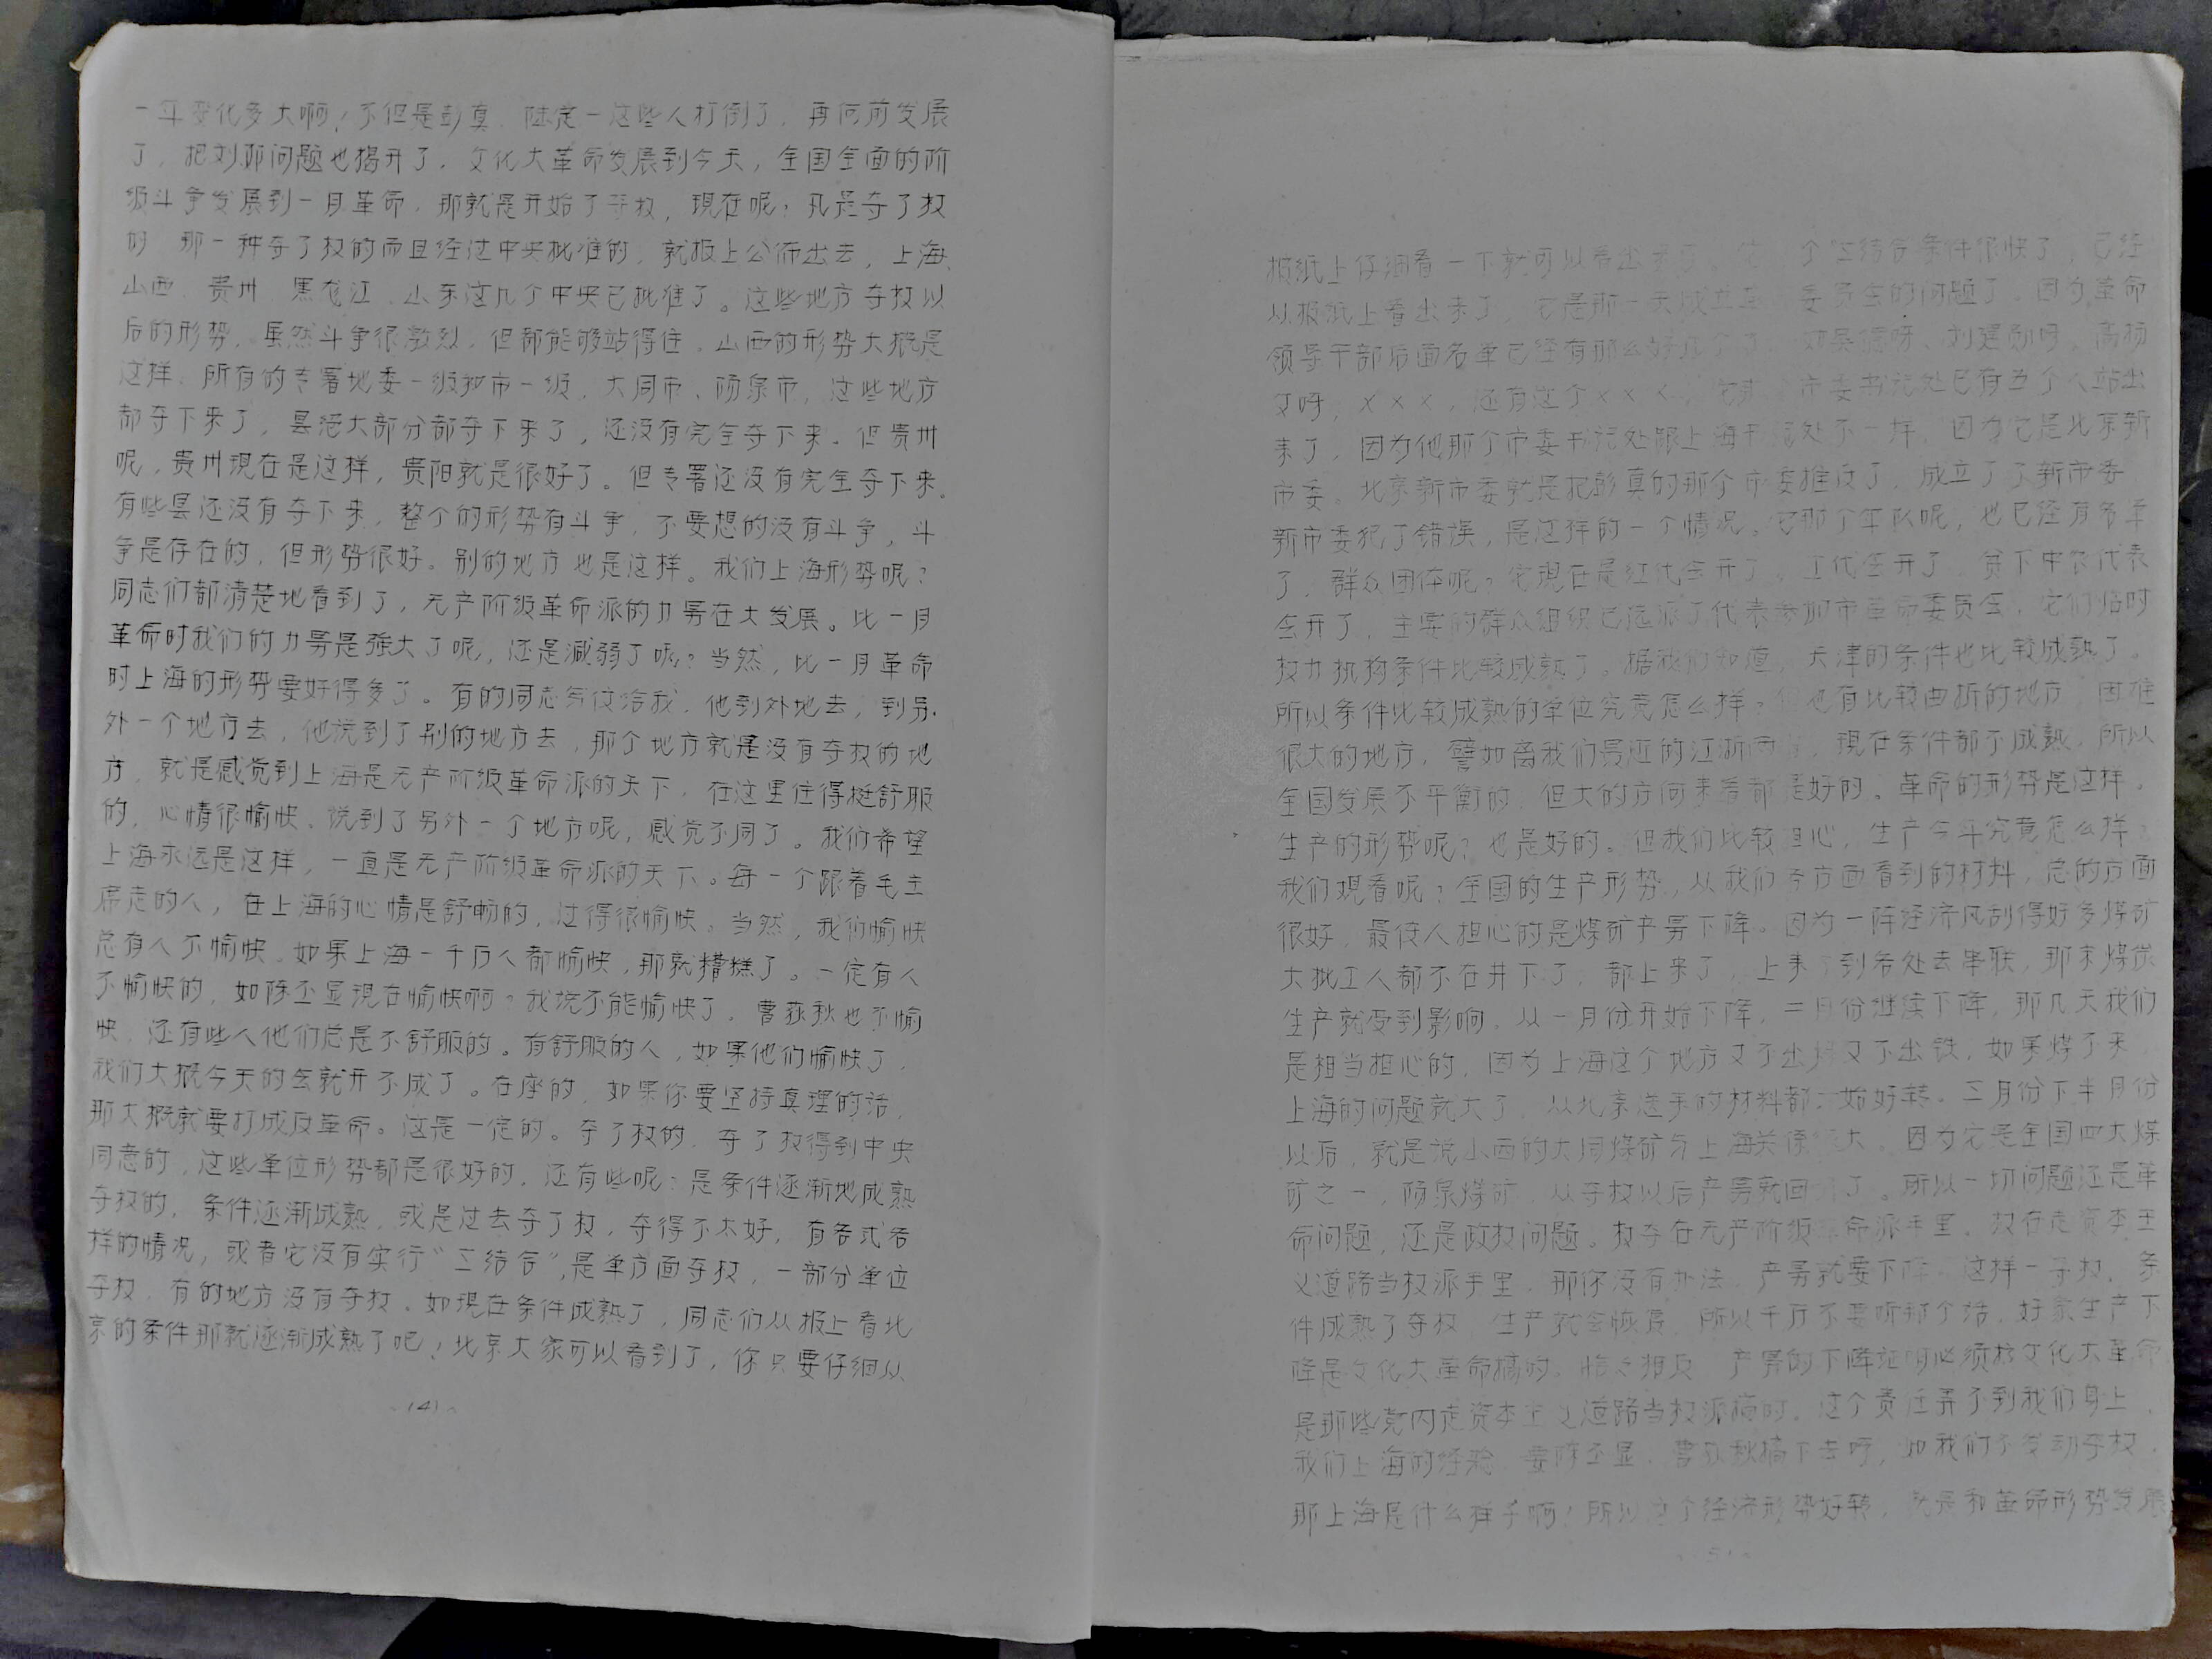 一年变化多大啊！不但是彭真、陆定一这些人打倒了，再向前发展
了，把刘邓问题也揭开了，文化大革命发展到今天，全国全面的阶
级斗争发展到一月革命，那就是开始了夺权，现在呢？凡是夺了权
的，那一种夺了权的而且经过中央批准的，就报上公布出去，上海、
山西、贵州、黑龙江、山东这几个中央已批准了。这些地方夺权以
后的形势，虽然斗争很激烈，但都能够站得住，山西的形势大概是
这样，所有的专署地委一级和市一级，大同市、阳泉市，这些地方
都夺下来了，县绝大部分都夺下来了，还没有完全夺下来。但贵州
呢，贵州现在是这样，贵阳就是很好了。但专署还没有完全夺下来，
有些县还没有夺下来，整个的形势有斗争，不要想的没有斗争，斗
争是存在的，但形势很好。别的地方也是这样。我们上海形势呢？
同志们都清楚地看到了，无产阶级革命派的力量在大发展。比一月
革命时我们的力量是强大了呢，还是减弱了呢？当然，比一月革命
时上海的形势要好得多了。有的同志写信给我，他到外地去，到另
外一个地方去，他说到了别的地方去，那个地方就是没有夺权的地
方，就是感觉到上海是无产阶级革命派的天下，在这里住得挺舒服
的，心情很愉快。说到了另外一个地方呢，感觉不同了。我们希望
上海永远是这样，一直是无产阶级革命派的天下。每一个跟着毛主
席走的人，在上海的心情是舒畅的，过得很愉快。当然，我们愉快
总有人不愉快。如果上海一千万人都愉快，那就糟糕了。一定有人
不愉快的，如陈丕显现在愉快啊？我说不能愉快了，曹荻秋也不愉
快，还有些人他们总是不舒服的。有舒服的人，如果他们愉快了，
我们大概今天的会就开不成了。在座的，如果你要坚持真理的话，
那大概就要打成反革命。这是一定的。夺了权的，夺了权得到中央
同意的，这些单位形势都是很好的，还有些呢？是条件逐渐地成熟
夺权的，条件逐渐成熟，或是过去夺了权，夺得不太好，有各式各
样的情况，或者它没有实行“三结合”，是单方面夺权，一部分单位
夺权，有的地方没有夺权。如现在条件成熟了，同志们从报上看北
京的条件那就逐渐成熟了吧！北京大家可以看到了，你只要仔细从
（4）
报纸上仔细看一下就可以看出来了，个三结合条件很快了，已经
从报纸上看出来了，它是那一天成立革委员会的问题了。因为革命
领导干部后面名单已经有那么好几 如吴德呀、刘建勋呀、高扬
文呀，×××，还有这个×××，市委书记处已有五个人站出
来了，因为他那个市委书记处跟上海书记处不一样，因为它是北京新
市委。北京新市委就是把彭真的那个市委推没了，成立了了新市委
新市委犯了错误，是这样的一个情况。它那个军队呢，也已经有名单
了，群众团体呢？它现在是红代会开了，工代会开了，贫下中农代表
会开了，主要的群众组织已选派了代表参加市革命委员会，它们临时
权力机构条件比较成熟了。据我们知道，天津的条件也比较成熟了。
所以条件比较成熟的单位究竟怎么样？但也有比较曲折的地方，困难
很大的地方，譬如离我们最近的江浙两，现在条件都不成熟，所以
全国发展不平衡的，但大的方向来看都是好的。革命的形势是这样。
生产的形势呢？也是好的。但我们比较担心，生产今年究竟怎么样？
我们观看呢？全国的生产形势，从我们各方面看到的材料，总的方面
很好，最使人担心的是煤矿产量下降。因为一阵经济风刮得好多煤矿
大批工人都不在井下了，都上来了，上来了到各处去串联，那末煤炭
生产就受到影响，从一月份开始下降，二月份继续下降，那几天我们
是相当担心的，因为上海这个地方又不出煤又不出铁，如果煤不来，
上海的问题就大了，从北京送来的材料都开始好转。三月份下半月份
以后，就是说山西的大同煤矿与上海关系很大，因为它是全国四大煤
矿之一，阳泉煤矿，从夺权以后产量就回升了。所以一切问题还是革
命问题，还是政权问题。权夺在无产阶级革命派手里，权在走资本主
义道路当权派手里，那你没有办法，产量就要下降，这样一夺权，条
件成熟了夺权，生产就会恢复，所以千万不要听那个话，好象生产下
降是文化大革命搞的。恰恰相反，产量的下降证明必须搞文化大革命
是那些党内走资本主义道路当权派搞的，这个责任弄不到我们身上，
我们上海的经验，要陈丕显、曹荻秋搞下去呀，如我们不发动夺权，
那上海是什么样子啊！所以这个经济形势好转，也是和革命形势发展
（5）